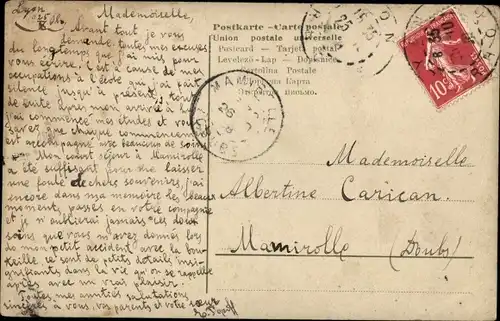 Lyon
Mademoiselle,
Avant tout je vous
demande toutes mes excuses
du longtemps que j'ai mis pour
vous écrire. C'est à cause de mes
occupations à l'école que j'ai fait
silence jusqu'à présent, tout
de suite après mon arrivé à
j'ai commencé mes études et vous
savez que chaque commencement
est accompagné de beaucoup de soins
Mon court séjour à Mamirolle
a été suffisant pour me laisser
une foule de chers souvenirs, j'ai
encore dans ma mémoire les beaux
moments, passés en votre compagnie
et je n'oublierai jamais les doux
soins que vous m'avez donnés lors
de mon petit accident avec la bou-
teille. ce sont de petits détails insi-
gnifiants dans la vie qu'on se rappelle
après avec un vrai plaisir.
Toutes mes amitiés salutations
sincères à vous, vos parents et votre sœur
Postkarte - Carte postale
Union postale universelle
Postcard - Tarjeta postal
Levelező-Lap - Dopisnice
Cartolina Postale
MAMIROLLE
DOUBS
10
Mademoiselle
Albertine Carican.
Mamirolle (Doubs)